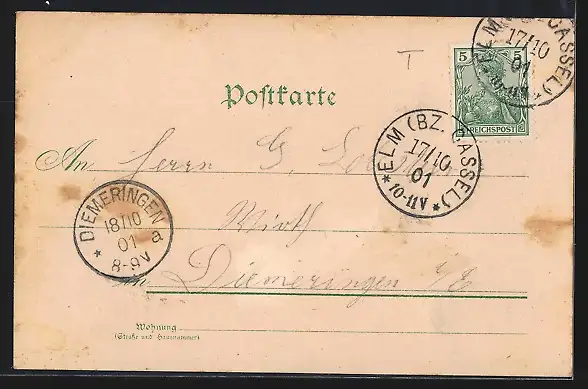 ELM (BZ. CASSEL)
17/10
01
10-11V
5 5
REICHSPOST
T
Postkarte
An Herrn G.
ELM (BZ. CASSEL)
17/10
01
10-11V
DIEMERINGEN
18/10
01 a
8-9V
Wirth
in Diemeringen i/E
Wohnung
(Straße und Hausnummer)